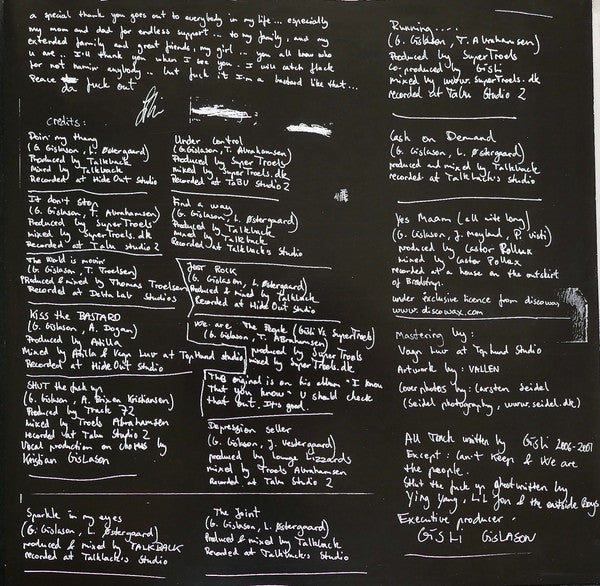 a special thank you goes out to everybody in my life... especially
my mom and dad for endless support... to my family, and my
extended family and great friends, my girl... you all know who
u are.. I'll thank you when I see you.. I will catch flack
for not namin anybody.. but fuck it I'm a bastard like that...
Peace da fuck out
credits:
Doin' my thang
(G. Gislason, L. Østergaard)
Produced by Talkback
Mixed by Talkback
Recorded at Hide Out Studio
It don't stop
(G. Gislason, T. Abrahamsen)
Produced by SuperTroels
mixed by SuperTroels.dk
Recorded at Tabu studio 2
The World is movin
(G. Gislason, T. Troelsen)
Produced & mixed by Thomas Troelsen
Recorded at Delta Lab Studios
Kiss the BASTARD
(G. Gislason, A. Dogan)
Produced by Atilla
Mixed by Atilla & Vagn Luv at TopHund studio
Recorded at Hide Out studio
SHUT the fuck up
(G. Gislason, A. Brixen Kristiansen)
Produced by Track 72
mixed by Troels Abrahamsen
recorded at Tabu Studio 2
Vocal production on chorus by
Kristian GISLASON
Sparkle in my eyes
(G. Gislason, L. Østergaard)
produced & mixed by TALKBACK
recorded at Talkback's Studio
Under Control
(G. Gislason, T. Abrahamsen)
Produced by Super Troels
mixed by SuperTroels.dk
Recorded at TABU studio 2
Find a way
(G. Gislason, L. Østergaard)
Produced by Talkback
mixed by Talkback
Recorded at Talkback's studio
JUST ROCK
(G. Gislason, L. Østergaard)
Produced & mixed by Talkback
Recorded at Hide Out Studio
We are The People (Gisli Vs SuperTroels)
(G. Gislason, T. Abrahamsen)
produced by SuperTroels
mixed by SuperTroels.dk
This original is on his album "I know
That you know" U should check
that out. It's good.
Depression seller
(G. Gislason, J. Vestergaard)
produced by Lounge Lizzards
mixed by Troels Abrahamsen
Recorded at Tabu Studio 2
The Joint
(G. Gislason, L. Østergaard)
Produced & mixed by Talkback
Recorded at Talkback's Studio
Running....
(G. Gislason, T. Abrahamsen)
Produced by SuperTroels
co-produced by Gisli
mixed by www.SuperTroels.dk
recorded at Tabu Studio 2
Cash on Demand
(G. Gislason, L. Østergaard)
produced and mixed by Talkback
recorded at Talkback's studio
Yes Maam (all nite long)
(G. Gislason, J. Mayland, P. Visti)
produced by Castor Pollux
mixed by Castor Pollux
recorded at a house on the outskirt
of Bredstrup.
under exclusive licence from discowax
www.discowax.com
Mastering by:
Vagn Luv at TopHund Studio
Artwork by: VALLEN
Cover photos by: Carsten Seidel
(Seidel photography, www.seidel.dk)
All Track written by Gisli 2006-2007
Except: Can't Keep & We are
the people.
Shut the fuck up ghostwritten by
Ying Yang, Lil Jon & the eastside Boys
Executive producer:
GiSLi GiSLASON